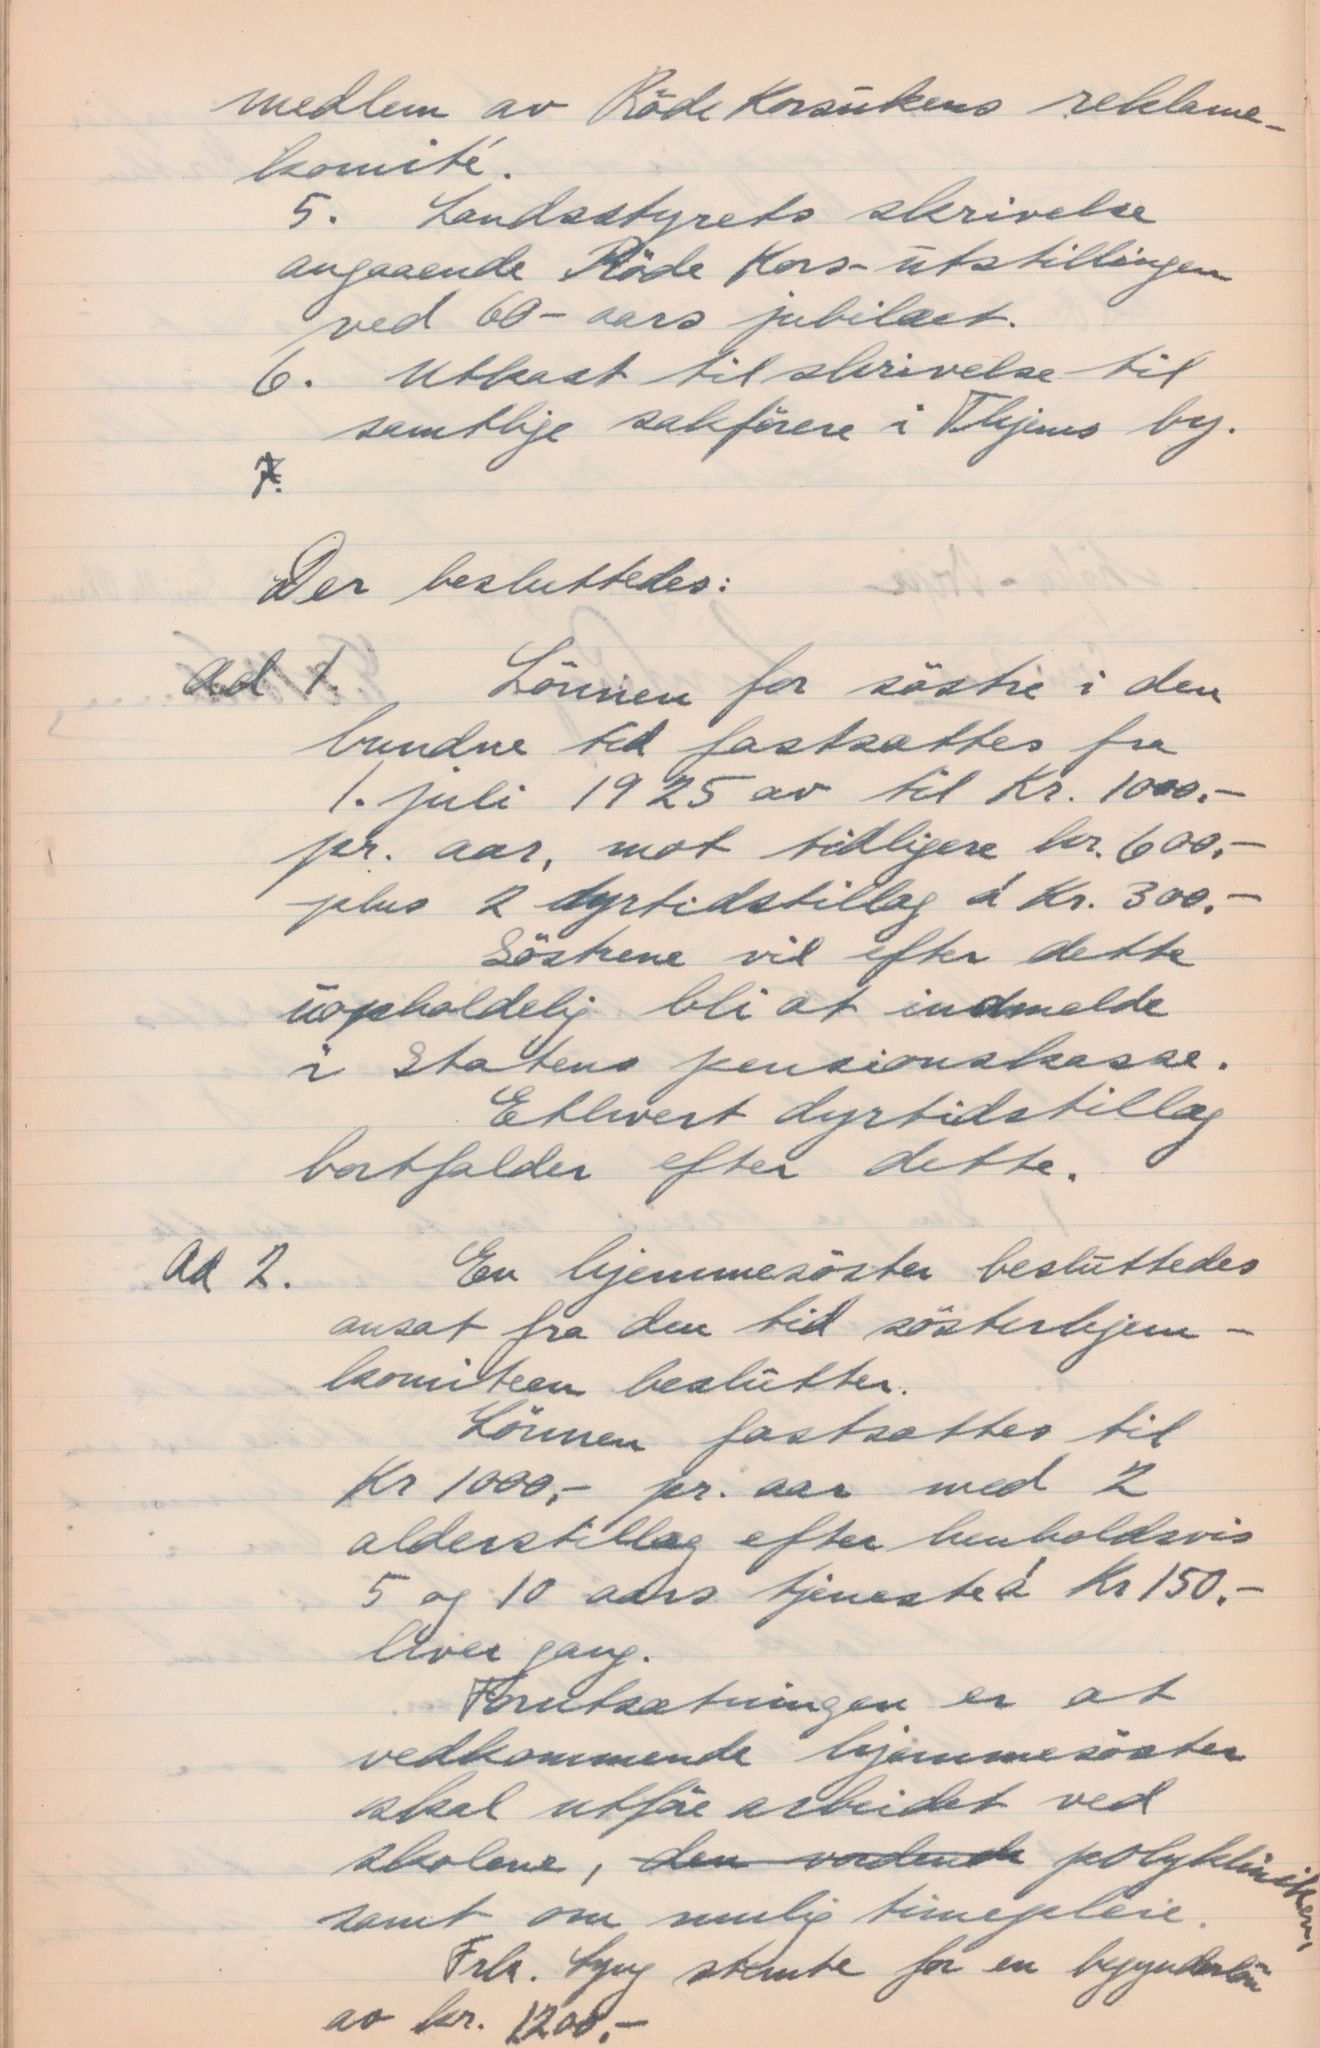 medlem av Röde Korsukens reklame-
komité.
5. Landsstyrets skrivelse
angaaende Röde Kors-utstillingen
ved 60-aars jubilæet.
6. Utkast til skrivelse til
samtlige sakförere i Thjems by.
7.
Der besluttedes:
Ad 1. Lönnen for söstre i den
bundne tid fastsattes fra
1. juli 1925 av til Kr. 1000.-
pr. aar, mot tidligere kr. 600.-
plus 2 dyrtidstillæg á Kr. 300.-
Söstrene vil efter dette
uopholdelig bli at indmelde
i Statens pensionskasse.
Ethvert dyrtidstillæg
bortfalder efter dette.
Ad 2. En hjemmesöster besluttedes
ansat fra den tid sösterhjem-
komiteen beslutter.
Lönnen fastsattes til
Kr 1000,- pr. aar med 2
alderstillæg efter henholdsvis
5 og 10 aars tjeneste á Kr 150.-
hver gang.
Forutsætningen er at
vedkommende hjemmesöster
skal utföre arbeidet ved
skolene, den vordende polyklinikken,
samt om mulig timepleie.
Frk. Lyng stemte for en begynderlön
av kr. 1200.-